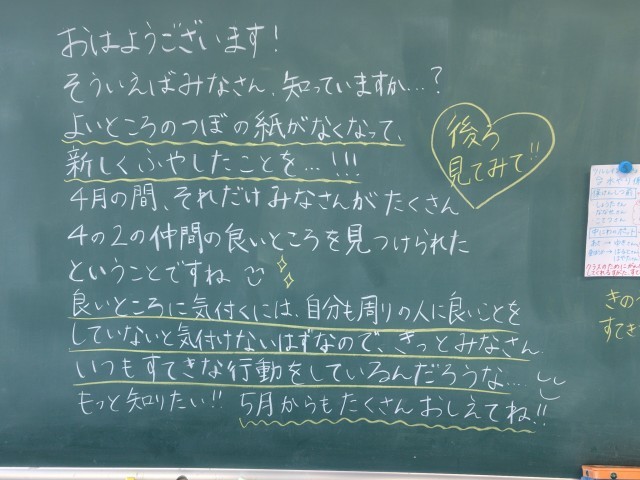 おはようございます!
そういえばみなさん、知っていますか…?
よいところのつぼの紙がなくなって、
新しくふやしたことを…!!!
4月の間、それだけみなさんがたくさん
4の2の仲間の良いところを見つけられた
ということですね
良いところに気付くには、自分も周りの人に良いことを
していないと気付けないはずなので、きっとみなさん
いつもすてきな行動をしているんだろうな…
もっと知りたい!! 5月からもたくさんおしえてね!!
後ろ
見てみて!!
きのう
すてき